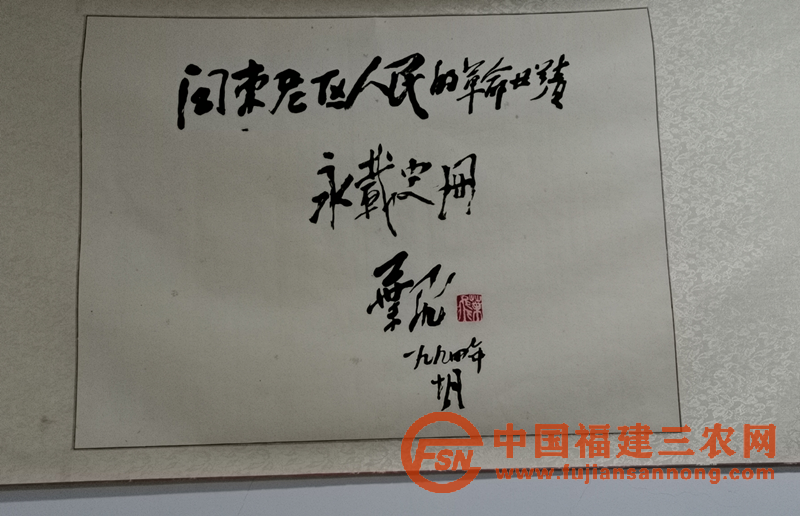 闽东老区人民的革命业绩
永载史册
叶飞
一九九四年
十月
叶飞
FSN
中国福建三农网
www.fujiansannong.com